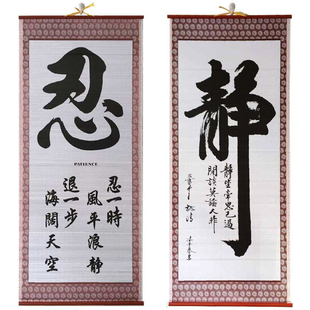 忍
PATIENCE
忍一時
風平浪靜
退一步
海闊天空
靜
靜坐常思己過
閒談莫論人非